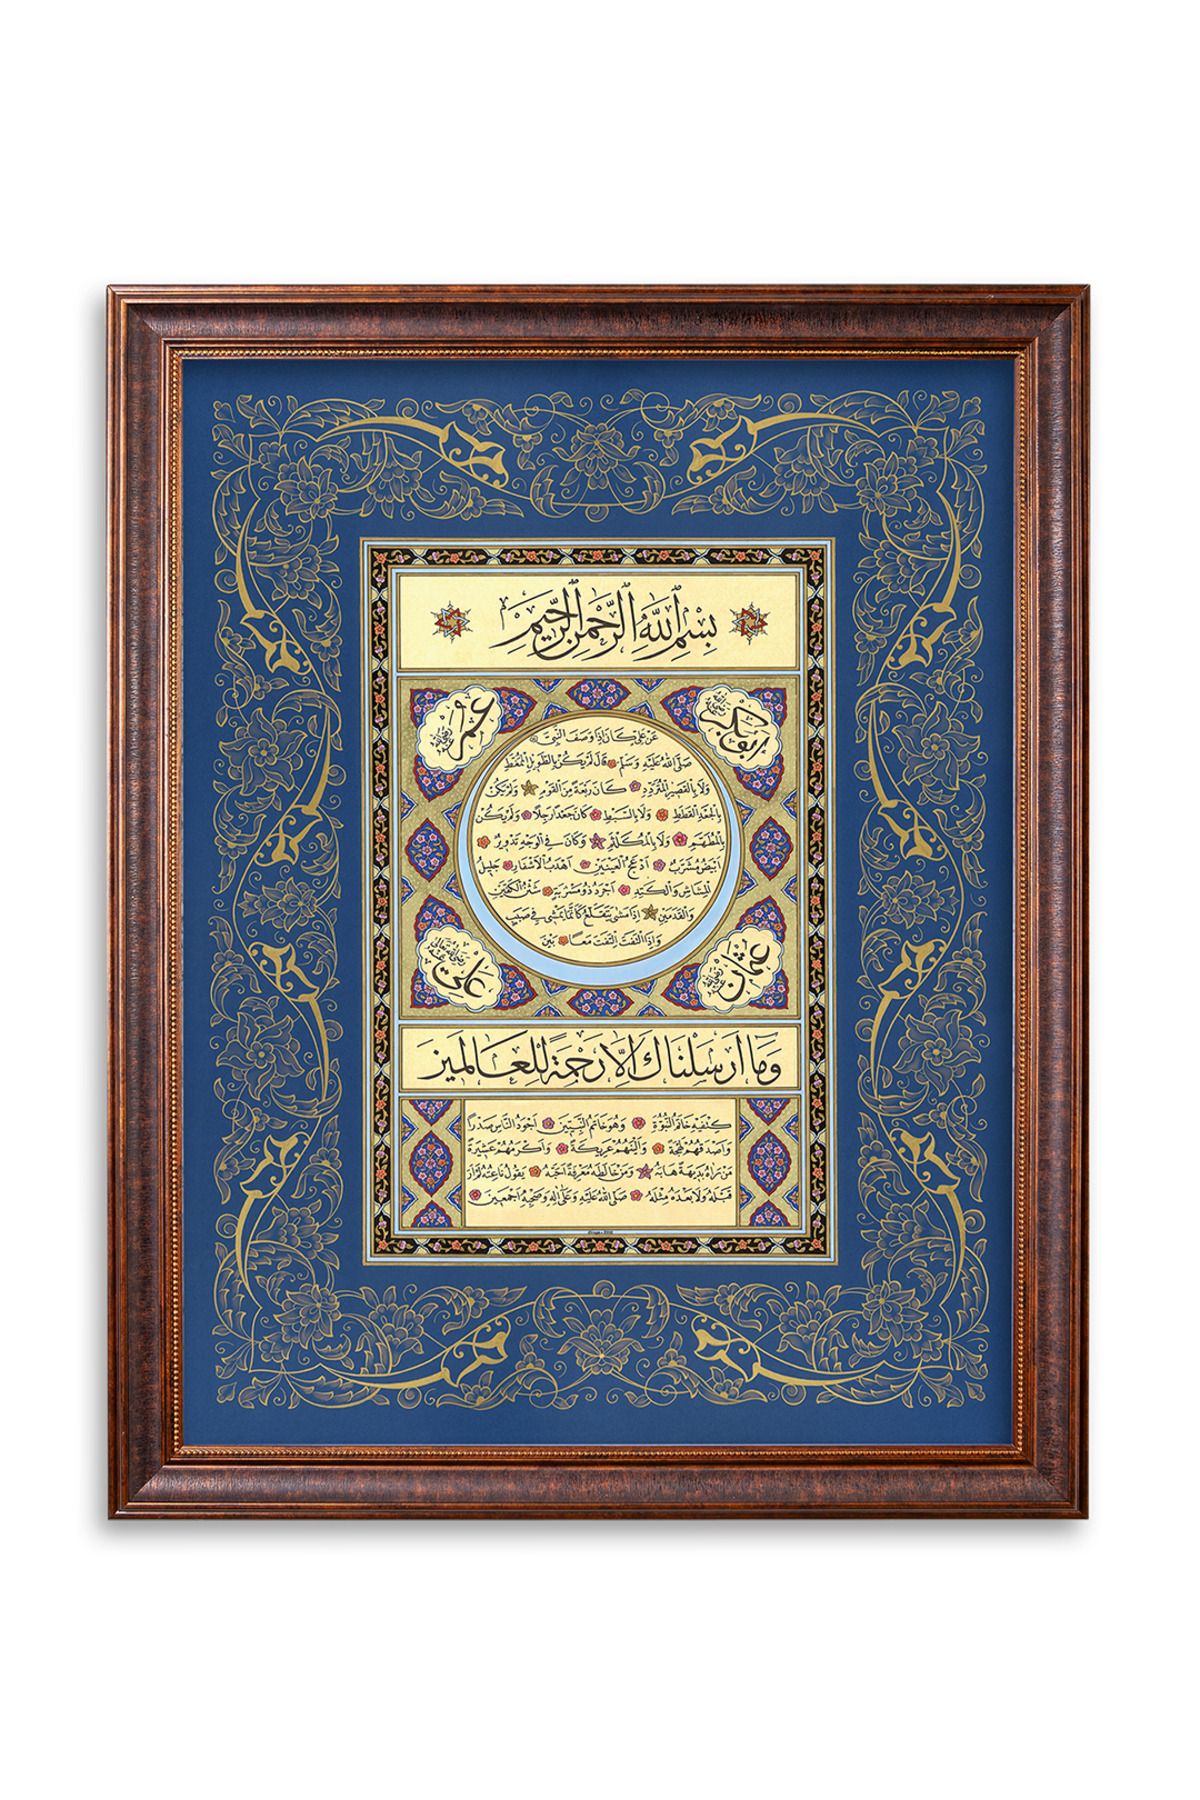 بِسْمِ اللّٰهِ الرَّحْمٰنِ الرَّحِيمِ
ابو بكر رضى الله عنه
عمر رضى الله عنه
عَنْ عَلِىٍّ كَانَ اِذَا وَصَفَ النَّبِىَّ
صَلَّى اللّٰهُ عَلَيْهِ وَسَلَّمَ قَالَ لَمْ يَكُنْ بِالطَّوِيلِ الْمُمَّغِطِ
وَلَا بِالْقَصِيرِ الْمُتَرَدِّدِ كَانَ رَبْعَةً مِنَ الْقَوْمِ وَلَمْ يَكُنْ
بِالْجَعْدِ الْقَطَطِ وَلَا بِالسَّبِطِ كَانَ جَعْدًا رَجِلًا وَلَمْ يَكُنْ
بِالْمُطَهَّمِ وَلَا بِالْمُكَلْثَمِ وَكَانَ فِى الْوَجْهِ تَدْوِيرٌ
اَبْيَضُ مُشْرَبٌ اَدْعَجُ الْعَيْنَيْنِ اَهْدَبُ الْاَشْفَارِ جَلِيلُ
الْمُشَاشِ وَالْكَتَدِ اَجْرَدُ ذُو مَسْرُبَةٍ شَثْنُ الْكَفَّيْنِ
وَالْقَدَمَيْنِ اِذَا مَشٰى يَتَقَلَّعُ كَاَنَّمَا يَمْشِى فِى صَبَبٍ
وَاِذَا الْتَفَتَ الْتَفَتَ مَعًا بَيْنَ
عثمان رضى الله عنه
على رضى الله تعالى عنه
وَمَا اَرْسَلْنَاكَ اِلَّا رَحْمَةً لِلْعَالَمِينَ
كَتِفَيْهِ خَاتَمُ النُّبُوَّةِ وَهُوَ خَاتَمُ النَّبِيِّينَ اَجْوَدُ النَّاسِ صَدْرًا
وَاَصْدَقُهُمْ لَهْجَةً وَاَلْيَنُهُمْ عَرِيكَةً وَاَكْرَمُهُمْ عَشِيرَةً
مَنْ رَاٰهُ بَدِيهَةً هَابَهُ وَمَنْ خَالَطَهُ مَعْرِفَةً اَحَبَّهُ يَقُولُ نَاعِتُهُ لَمْ اَرَ
قَبْلَهُ وَلَا بَعْدَهُ مِثْلَهُ صَلَّى اللّٰهُ عَلَيْهِ وَعَلٰى اٰلِهِ وَصَحْبِهِ اَجْمَعِينَ